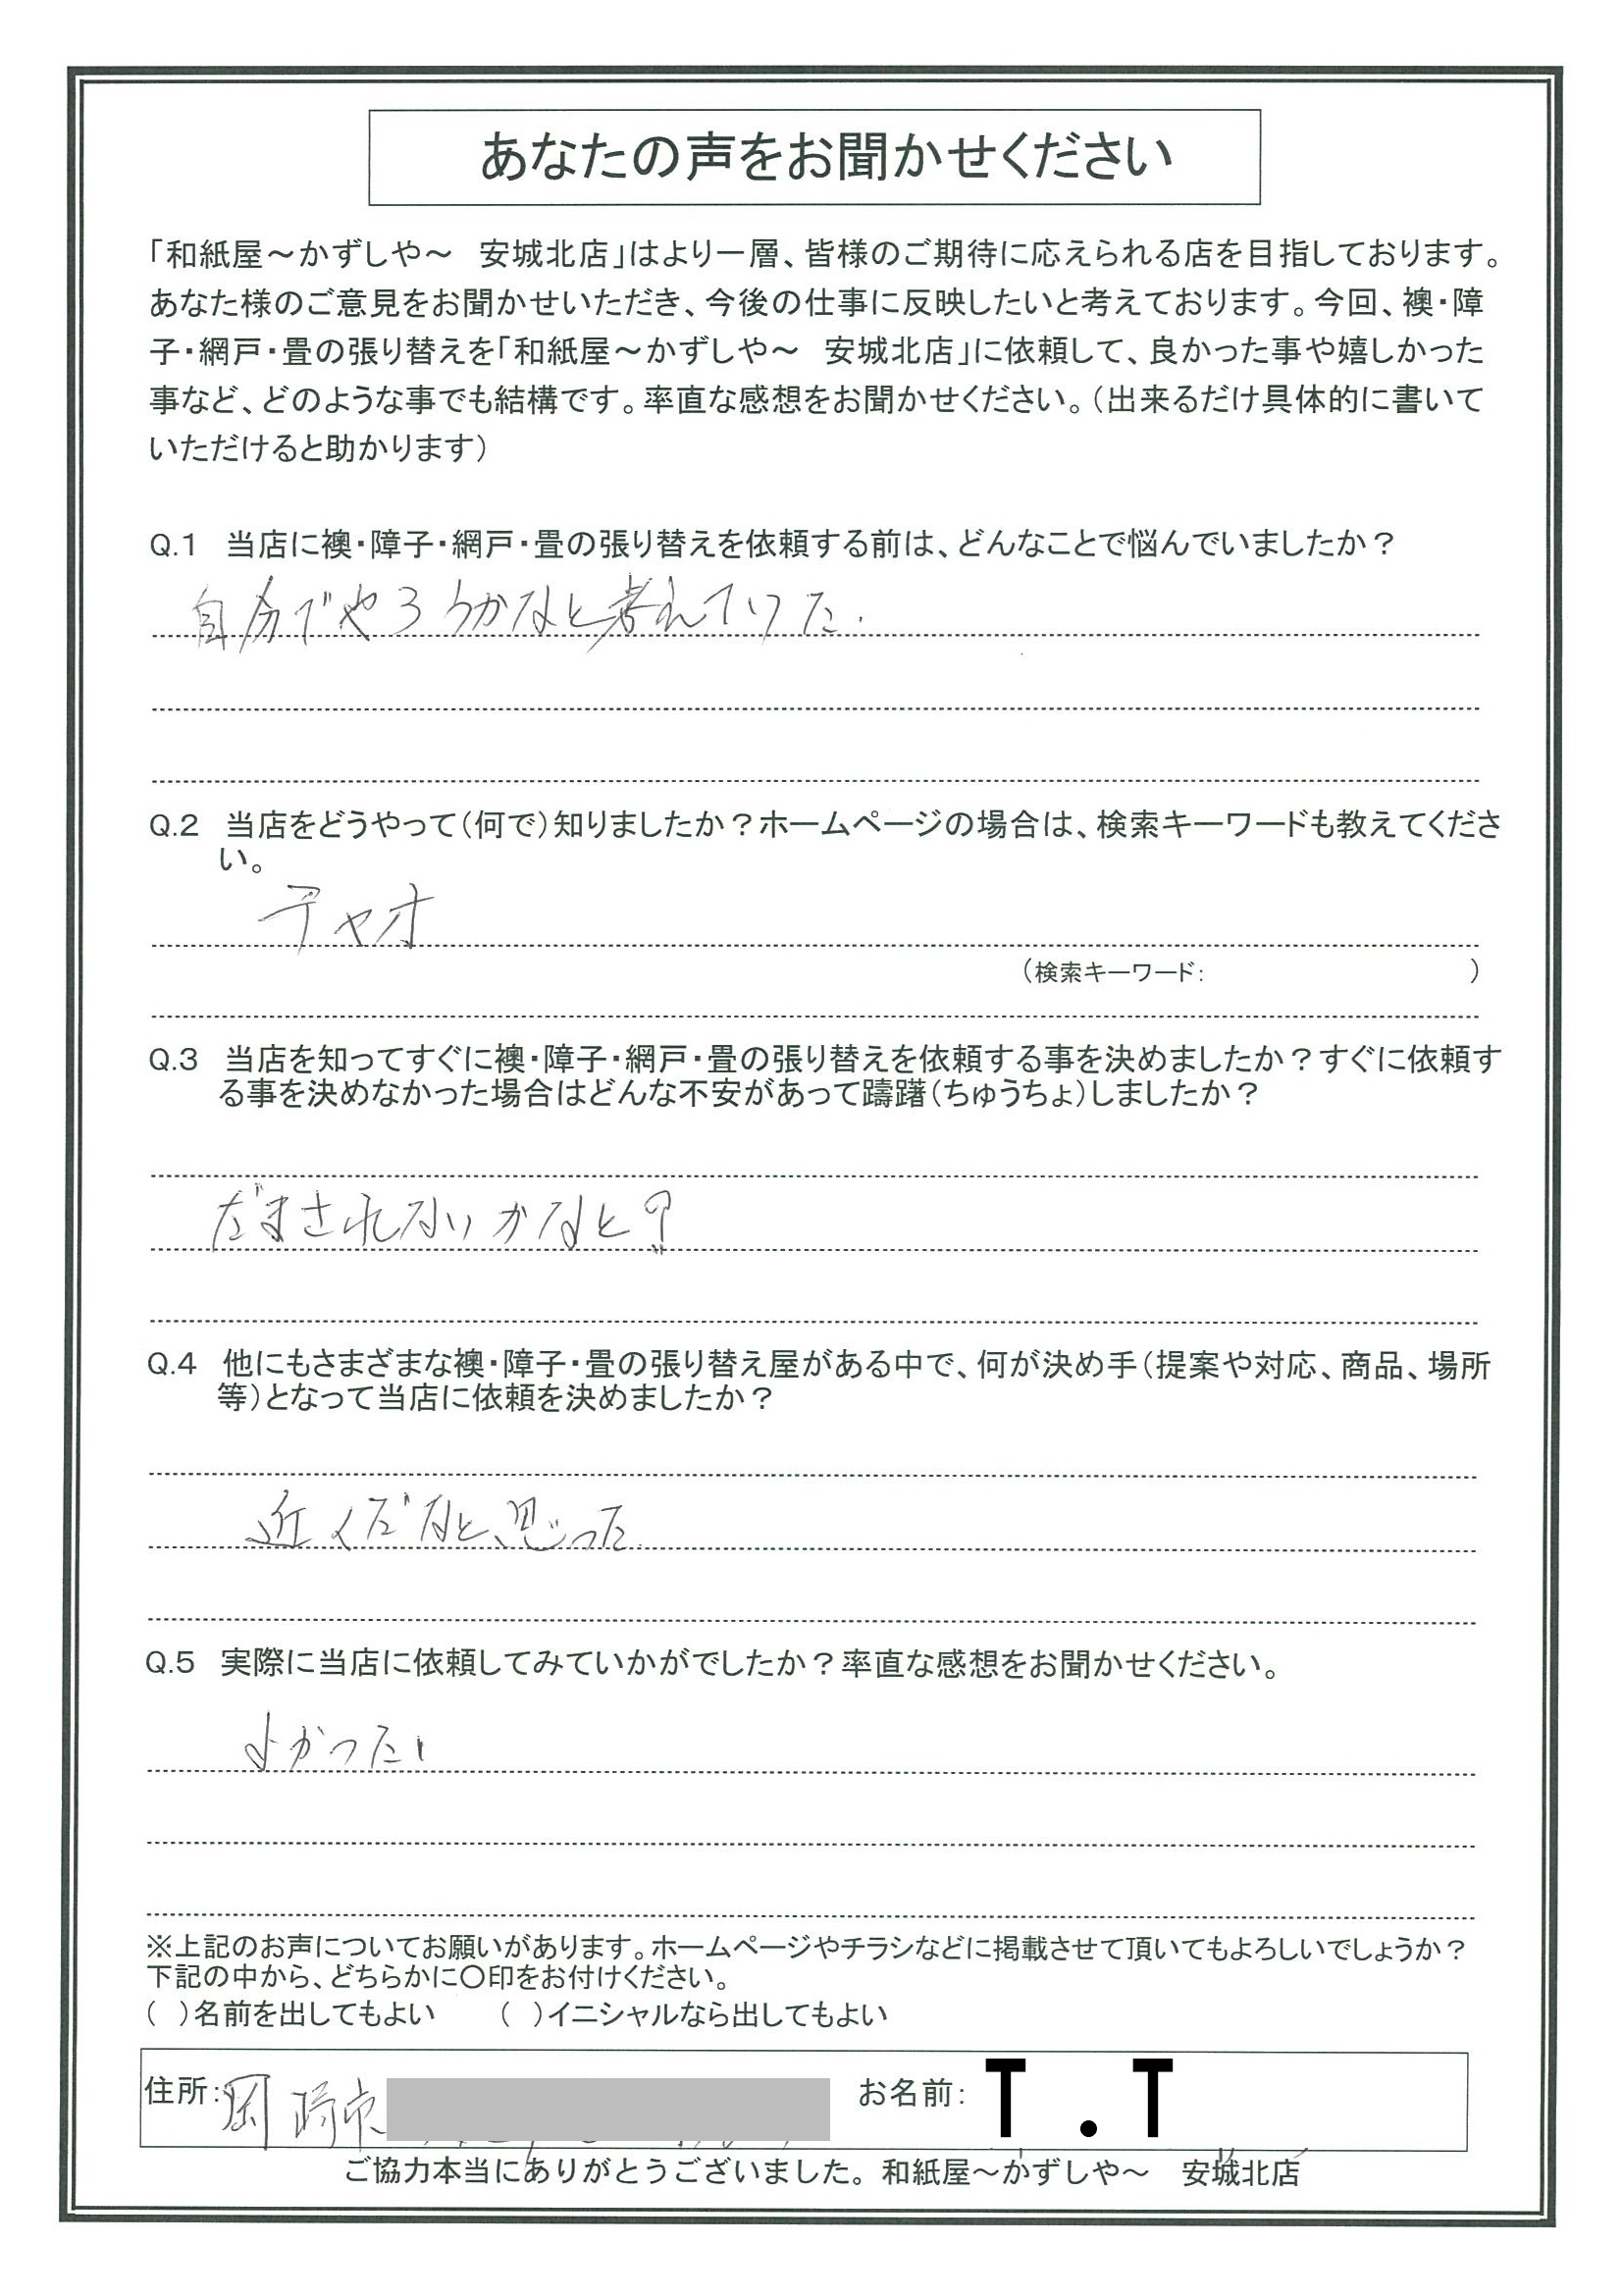 あなたの声をお聞かせください
「和紙屋～かずしや～　安城北店」はより一層、皆様のご期待に応えられる店を目指しております。
あなた様のご意見をお聞かせいただき、今後の仕事に反映したいと考えております。今回、襖・障
子・網戸・畳の張り替えを「和紙屋～かずしや～　安城北店」に依頼して、良かった事や嬉しかった
事など、どのような事でも結構です。率直な感想をお聞かせください。（出来るだけ具体的に書いて
いただけると助かります）
Q.1　当店に襖・障子・網戸・畳の張り替えを依頼する前は、どんなことで悩んでいましたか？
自分でやろうかなと考えていた.
Q.2　当店をどうやって（何で）知りましたか？ホームページの場合は、検索キーワードも教えてくださ
い。
チャオ
（検索キーワード：　）
Q.3　当店を知ってすぐに襖・障子・網戸・畳の張り替えを依頼する事を決めましたか？すぐに依頼す
る事を決めなかった場合はどんな不安があって躊躇（ちゅうちょ）しましたか？
だまされないかなと?
Q.4　他にもさまざまな襖・障子・畳の張り替え屋がある中で、何が決め手（提案や対応、商品、場所
等）となって当店に依頼を決めましたか？
近くだなと思った
Q.5　実際に当店に依頼してみていかがでしたか？率直な感想をお聞かせください。
よかった
※上記のお声についてお願いがあります。ホームページやチラシなどに掲載させて頂いてもよろしいでしょうか？
下記の中から、どちらかに〇印をお付けください。
（　）名前を出してもよい　　（　）イニシャルなら出してもよい
住所：岡崎市　お名前：T.T
ご協力本当にありがとうございました。和紙屋～かずしや～　安城北店